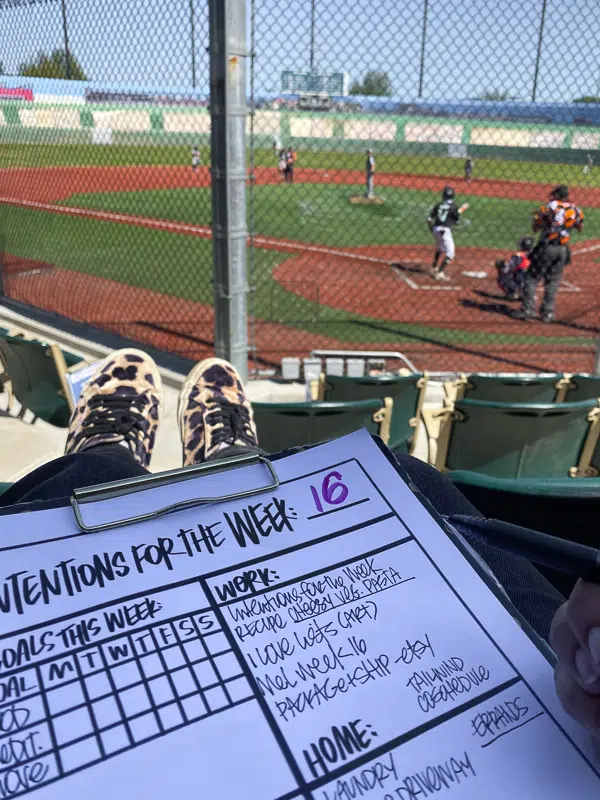 INTENTIONS FOR THE WEEK: 16
GOALS THIS WEEK:
GOAL M T W T F S S
MOVE
WORK:
INTENTIONS FOR THE WEEK
RECIPE CHEESY VEG. PASTA
I LOVE LISTS (MAY)
MEL WEEK 16
PACKAGE + SHIP - ETSY
TAILWIND
COSCHEDULE
HOME:
LAUNDRY
DRIVEWAY
ERRANDS